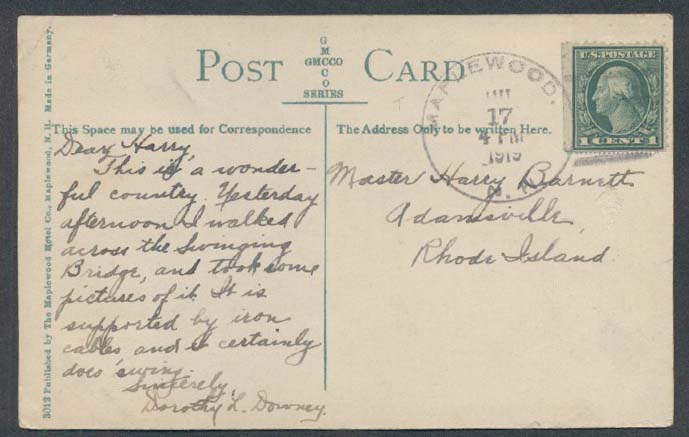 POST CARD
G
M
GMCCO
C
O
SERIES
This Space may be used for Correspondence
The Address Only to be written Here.
3012 Published by The Maplewood Hotel Co., Maplewood, N. H. Made in Germany.
MAPLEWOOD.
17
4 PM
1919
N.H.
U.S. POSTAGE
1 CENT 1
Dear Harry
This is a wonder-
ful country. Yesterday
afternoon I walked
across the Swinging
Bridge, and took some
pictures of it. It is
supported by iron
cables and it certainly
does swing.
Sincerely,
Dorothy L. Downey.
Master Harry Barnett
Adamsville
Rhode Island.